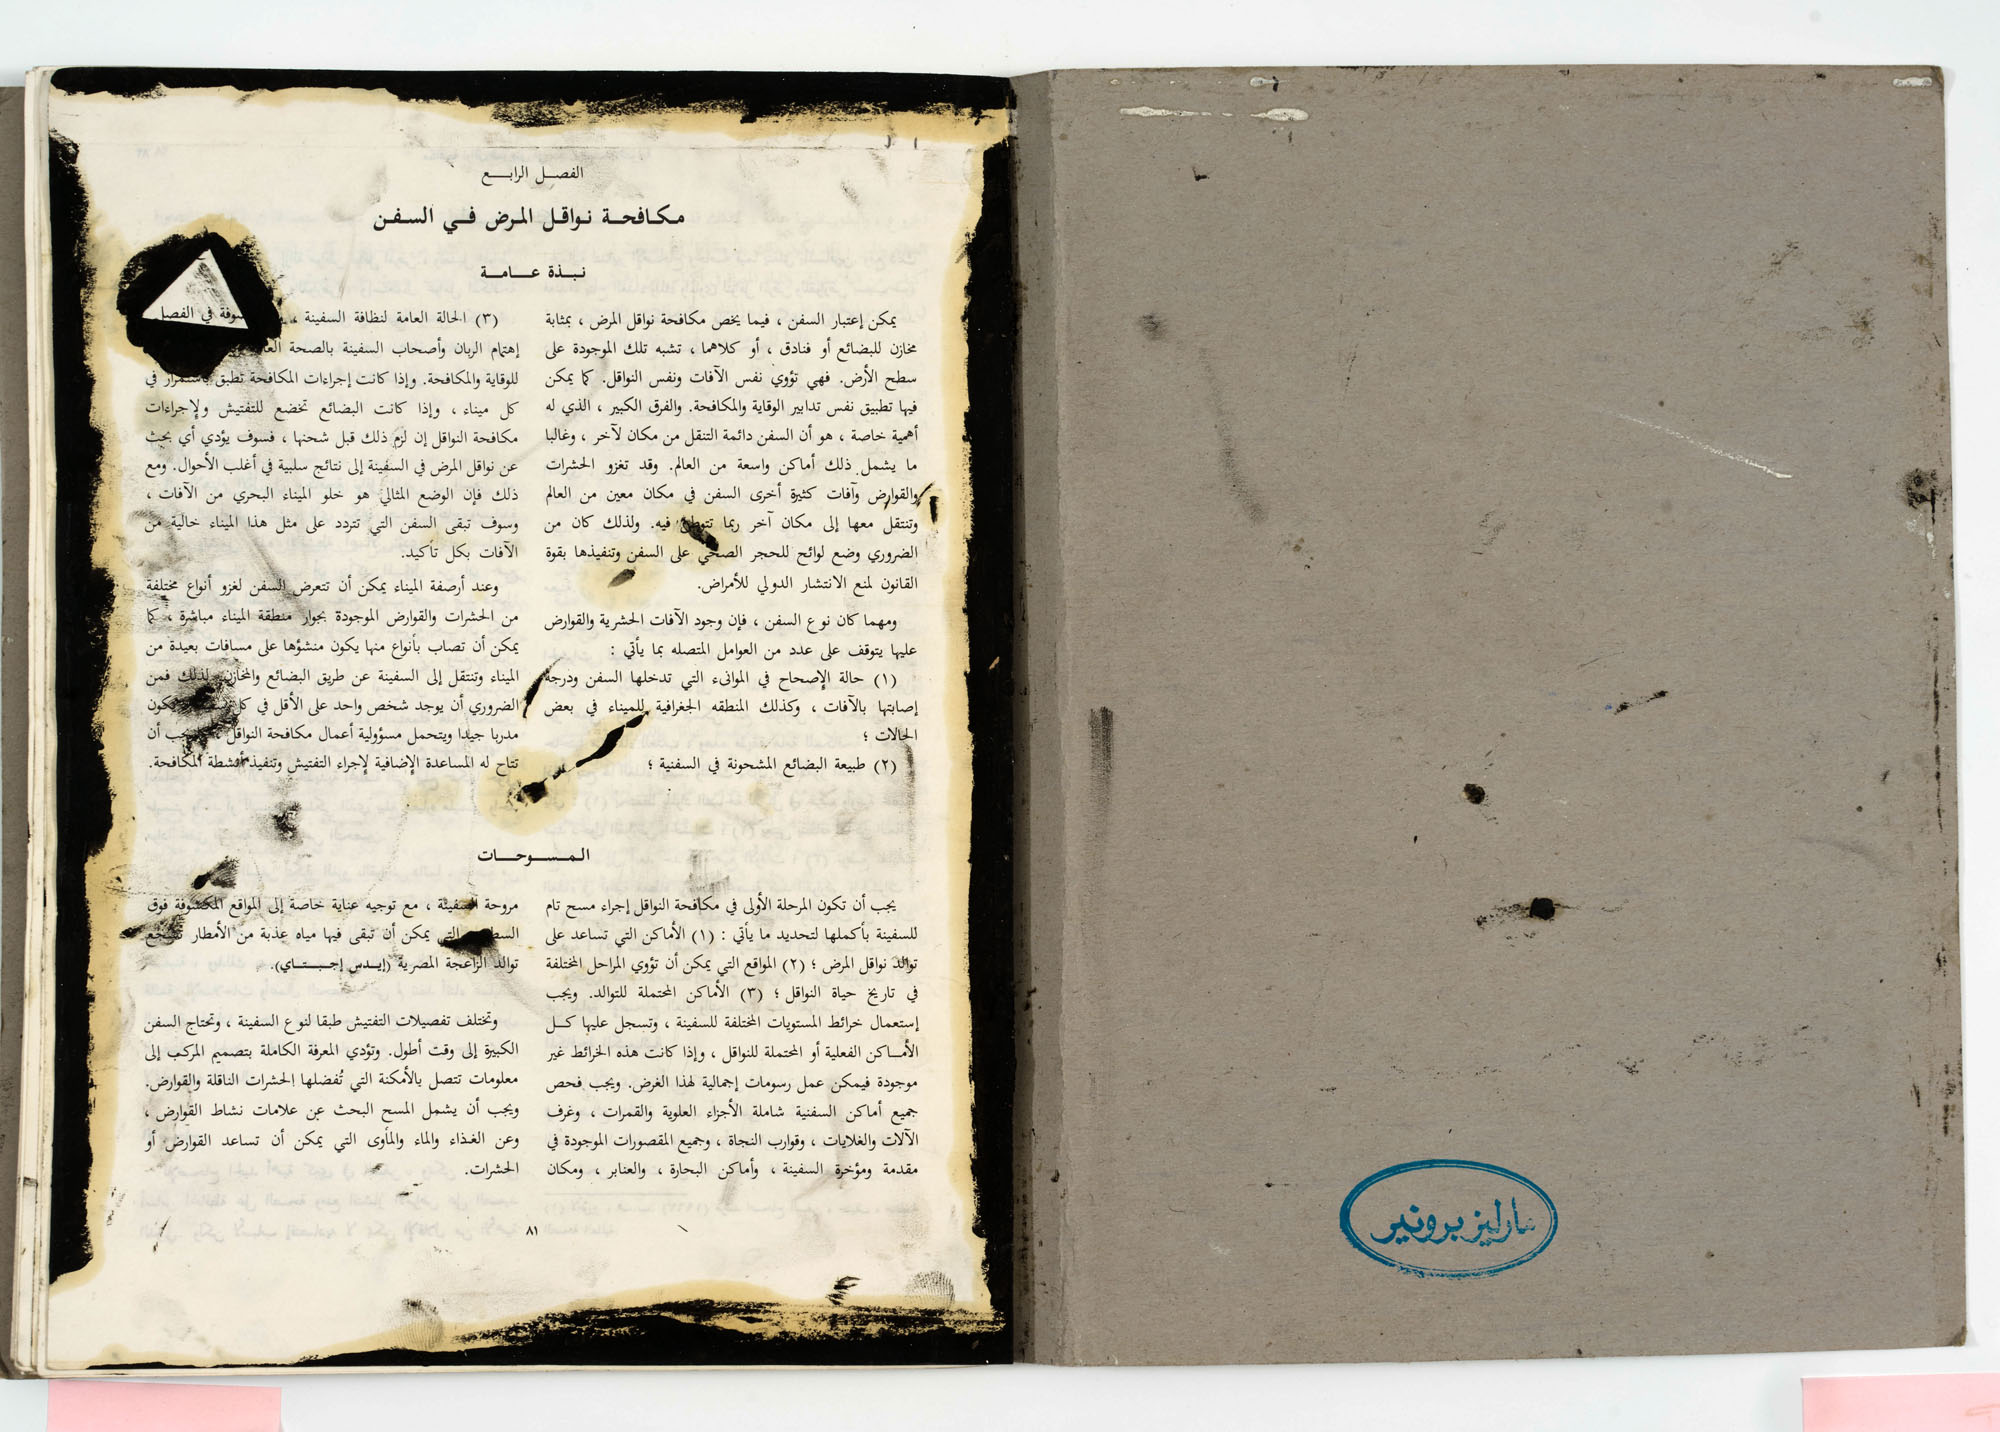 الفصل الرابع
مكافحة نواقل المرض في السفن
نبذة عامة
يمكن إعتبار السفن ، فيما يخص مكافحة نواقل المرض ، بمثابة
مخازن للبضائع أو فنادق ، أو كلاهما ، تشبه تلك الموجودة على
سطح الأرض. فهي تؤوي نفس الآفات ونفس النواقل. كما يمكن
فيها تطبيق نفس تدابير الوقاية والمكافحة. والفرق الكبير ، الذي له
أهمية خاصة ، هو أن السفن دائمة التنقل من مكان لآخر ، وغالبا
ما يشمل ذلك أماكن واسعة من العالم. وقد تغزو الحشرات
والقوارض وآفات كثيرة أخرى السفن في مكان معين من العالم
وتنتقل معها إلى مكان آخر ربما تتوطن فيه. ولذلك كان من
الضروري وضع لوائح للحجر الصحي على السفن وتنفيذها بقوة
القانون لمنع الانتشار الدولي للأمراض.
ومهما كان نوع السفن ، فإن وجود الآفات الحشرية والقوارض
عليها يتوقف على عدد من العوامل المتصله بما يأتي :
(١) حالة الإصحاح في الموانىء التي تدخلها السفن ودرجة
إصابتها بالآفات ، وكذلك المنطقه الجغرافية للميناء في بعض
الحالات ؛
(٢) طبيعة البضائع المشحونة في السفنية ؛
(٣) الحالة العامة لنظافة السفينة ، في الفصل
إهتمام الربان وأصحاب السفينة بالصحة
للوقاية والمكافحة. وإذا كانت إجراءات المكافحة تطبق باستمرار في
كل ميناء ، وإذا كانت البضائع تخضع للتفتيش ولإجراءات
مكافحة النواقل إن لزم ذلك قبل شحنها ، فسوف يؤدي أي بحث
عن نواقل المرض في السفينة إلى نتائج سلبية في أغلب الأحوال. ومع
ذلك فإن الوضع المثالي هو خلو الميناء البحري من الآفات ،
وسوف تبقى السفن التي تتردد على مثل هذا الميناء خالية من
الآفات بكل تأكيد.
وعند أرصفة الميناء يمكن أن تتعرض السفن لغزو أنواع مختلفة
من الحشرات والقوارض الموجودة بجوار منطقة الميناء مباشرة ، كما
يمكن أن تصاب بأنواع منها يكون منشؤها على مسافات بعيدة من
الميناء وتنتقل إلى السفينة عن طريق البضائع والمخازن. لذلك فمن
الضروري أن يوجد شخص واحد على الأقل في كل يكون
مدربا جيدا ويتحمل مسؤولية أعمال مكافحة النواقل ، ويجب أن
تتاح له المساعدة الإضافية لإجراء التفتيش وتنفيذ أنشطة المكافحة.
المسوحات
يجب أن تكون المرحلة الأولى في مكافحة النواقل إجراء مسح تام
للسفينة بأكملها لتحديد ما يأتي : (١) الأماكن التي تساعد على
توالد نواقل المرض ؛ (٢) المواقع التي يمكن أن تؤوي المراحل المختلفة
في تاريخ حياة النواقل ؛ (٣) الأماكن المحتملة للتوالد. ويجب
إستعمال خرائط المستويات المختلفة للسفينة ، وتسجل عليها كل
الأماكن الفعلية أو المحتملة للنواقل ، وإذا كانت هذه الخرائط غير
موجودة فيمكن عمل رسومات إجمالية لهذا الغرض. ويجب فحص
جميع أماكن السفنية شاملة الأجزاء العلوية والقمرات ، وغرف
الآلات والغلايات ، وقوارب النجاة ، وجميع المقصورات الموجودة في
مقدمة ومؤخرة السفينة ، وأماكن البحارة ، والعنابر ، ومكان
مروحة السفينة ، مع توجيه عناية خاصة إلى المواقع المكشوفة فوق
التي يمكن أن تبقى فيها مياه عذبة من الأمطار تشجع
توالد الزاعجة المصرية (إيدس إجبتاي).
وتختلف تفصيلات التفتيش طبقا لنوع السفينة ، وتحتاج السفن
الكبيرة إلى وقت أطول. وتؤدي المعرفة الكاملة بتصميم المركب إلى
معلومات تتصل بالأمكنة التي تُفضلها الحشرات الناقلة والقوارض.
ويجب أن يشمل المسح البحث عن علامات نشاط القوارض ،
وعن الغذاء والماء والمأوى التي يمكن أن تساعد القوارض أو
الحشرات.
٨١
مارليز برونير